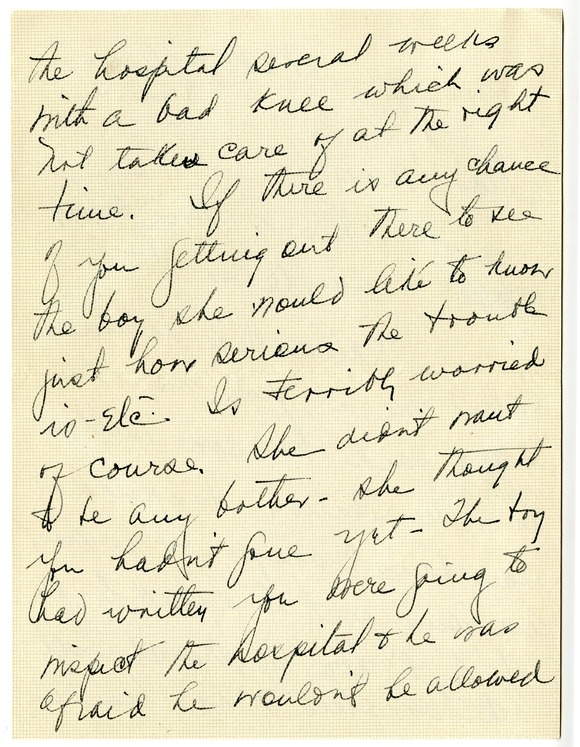 the hospital several weeks
with a bad knee which was
not taken care of at the right
time. If there is any chance
of you getting out there to see
the boy she would like to know
just how serious the trouble
is - Etc. Is terribly worried
of course. She didn't want
to be any bother - she thought
you hadn't gone yet - The boy
had written you were going to
inspect the hospital & he was
afraid he wouldn't be allowed